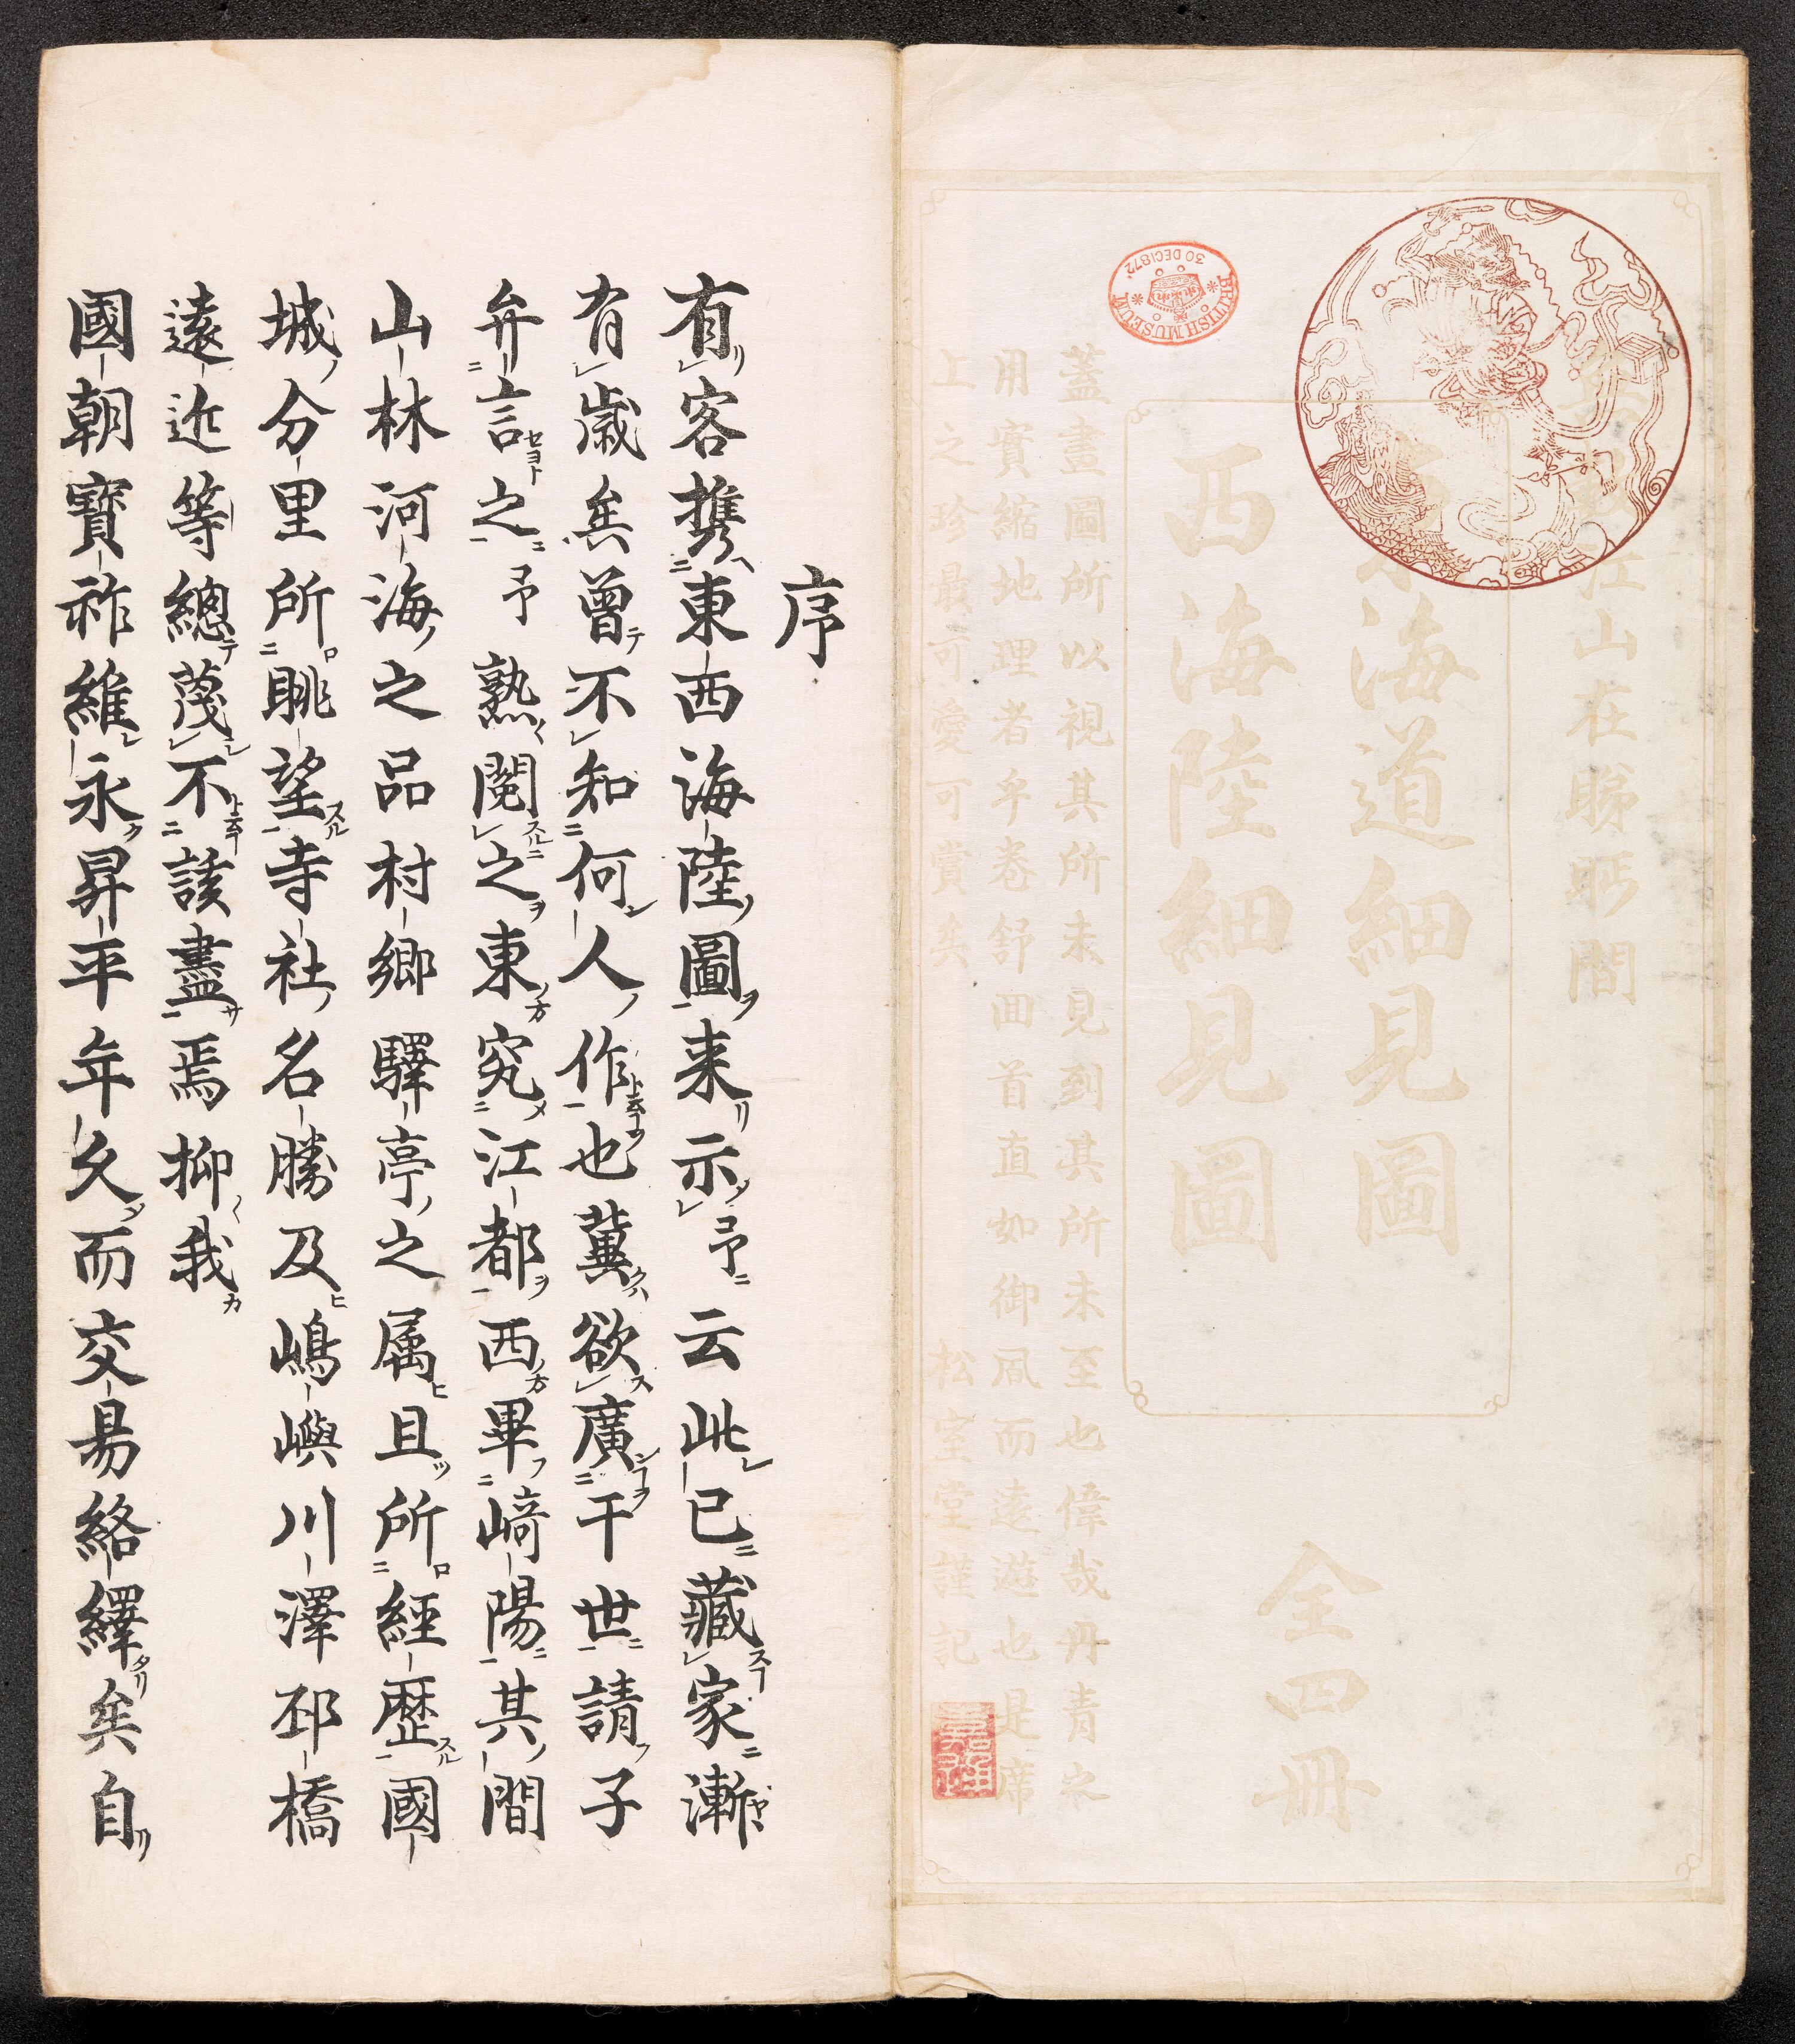 江山在睇眄間
東海道細見圖
西海陸細見圖
全四冊
蓋畫圖所以視其所未見到其所未至也偉哉丹青之
用實縮地理者乎巻舒回首直如御風而遠遊也是席
上之珍最可愛可賞矣 松室堂謹記
BRITISH MUSEUM
30 DEC 1872
序
有客携東西海陸圖来示予云此已藏家漸
有歳矣曾不知何人作也冀欲廣干世請子
弁言之予熟閲之東究江都西畢﨑陽其間
山林河海之品村郷驛亭之属且所經歴國
城分里所眺望寺社名勝及嶋嶼川澤邳橋
遠近等總蔑不該盡焉抑我
國朝寶祚維永昇平年久而交易絡繹矣自